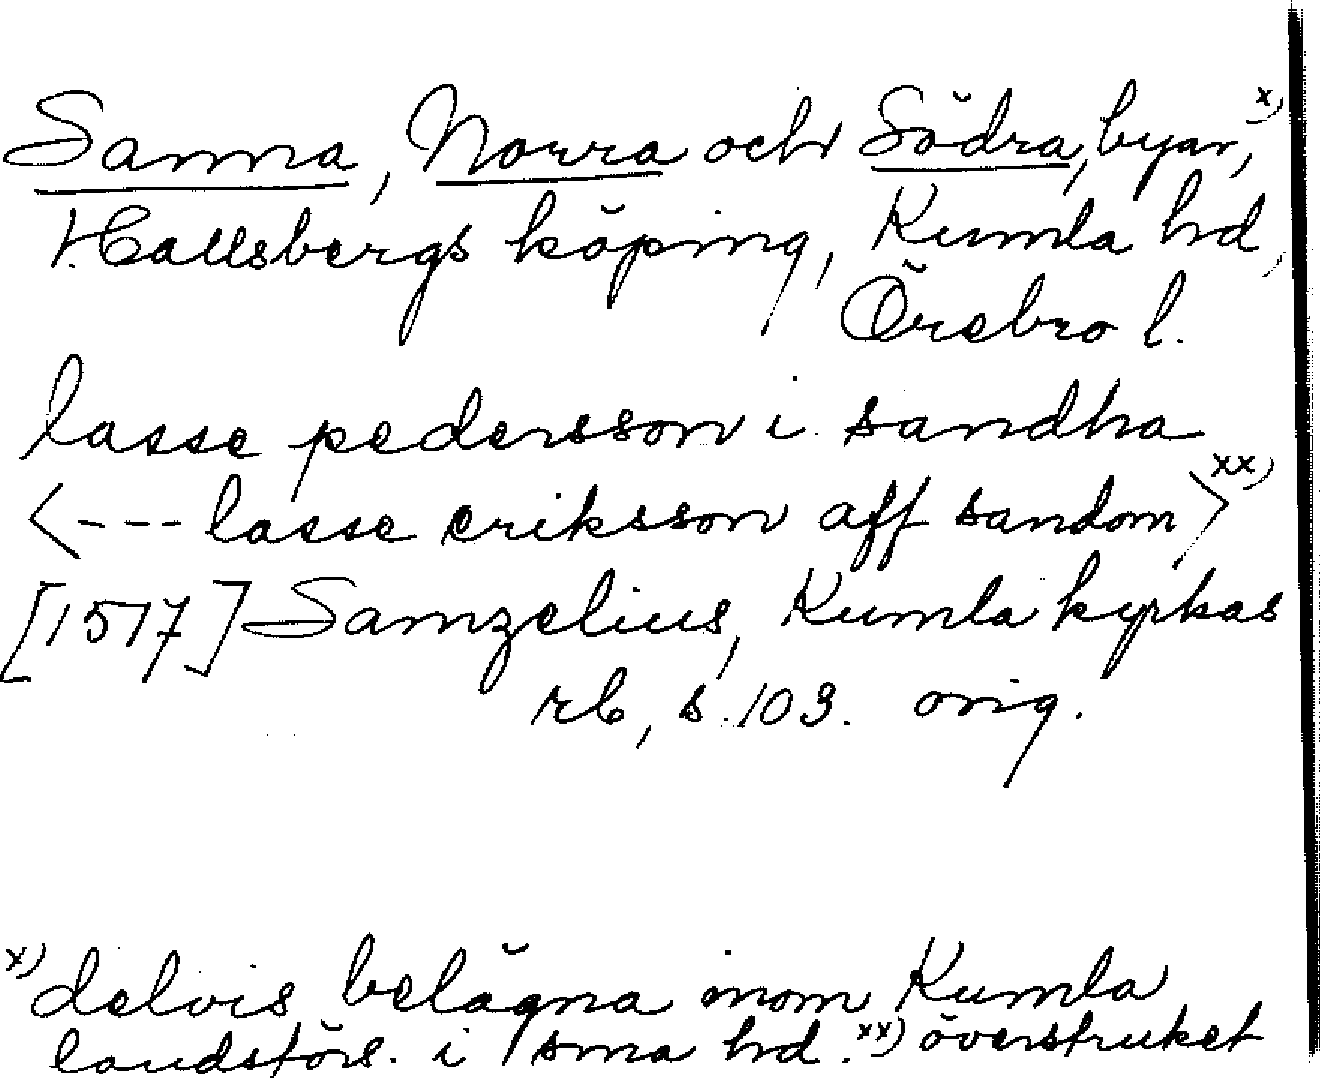 Sanna, Norra och Södra, byar, x)
Hallsbergs köping, Kumla hd,
Örebro l.
lasse pedersson i sandha
<--- lasse eriksson aff sandom> xx)
[1517] Samzelius, Kumla kyrkas
rb, s. 103. orig.
x) delvis belägna inom Kumla
landsförs. i sma hd. xx) överstruket